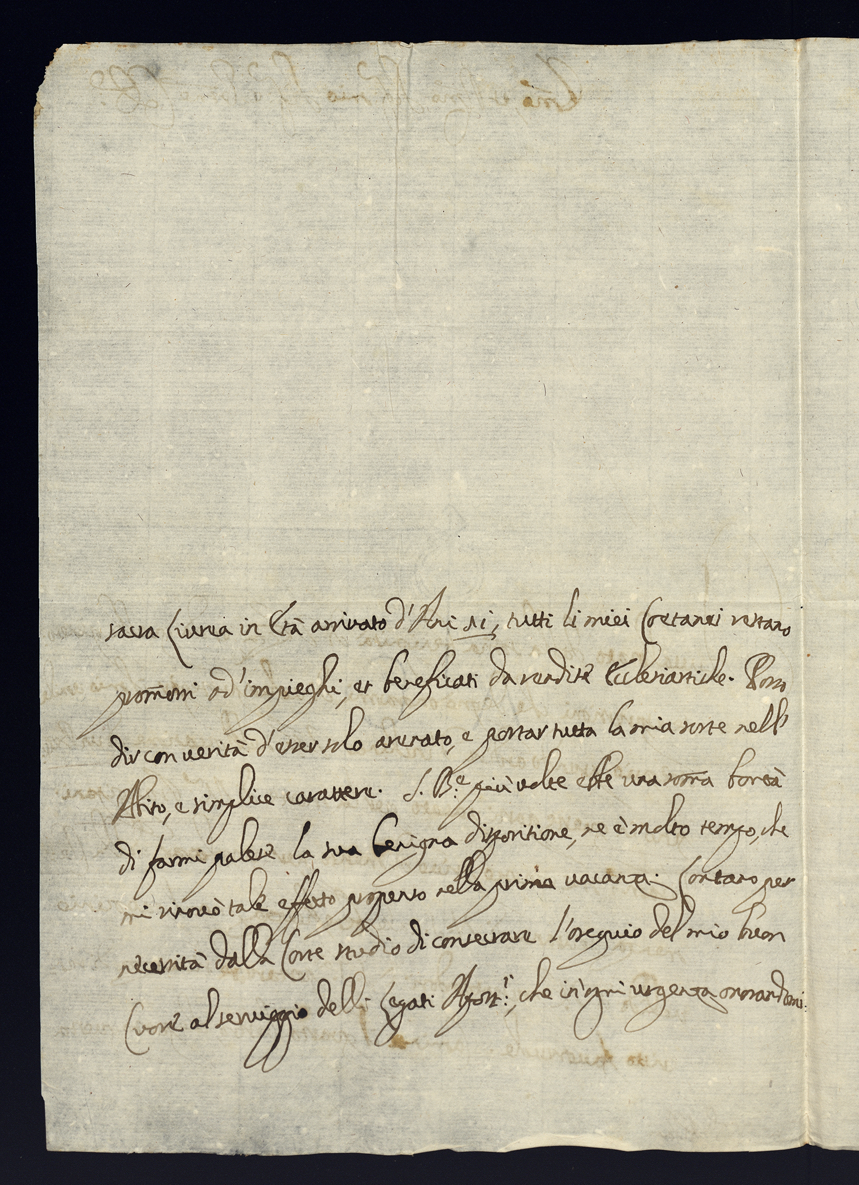 sacra Ciurea in Età arrivato d'Anni 51, tutti li miei Coetanei restano
promossi ad' impieghi, et beneficati da rendite Ecclesiastiche. Posso
dir con verità d'esser solo arenato, e portar tutta la mia sorte nell'
Abito, e simplice carattere. S. B.e più volte ebbe una soma bontà
di farmi palese la sua benigna dispositione, ne è molto tempo, che
mi rinovò tale effetto propenso nella prima vacanza. Lontano per
necessità dalla Corte studio di consecrare l'ossequio del mio buon
Cuore al serviggio delli Legati Apost.i, che in ogni urgenza onorandomi